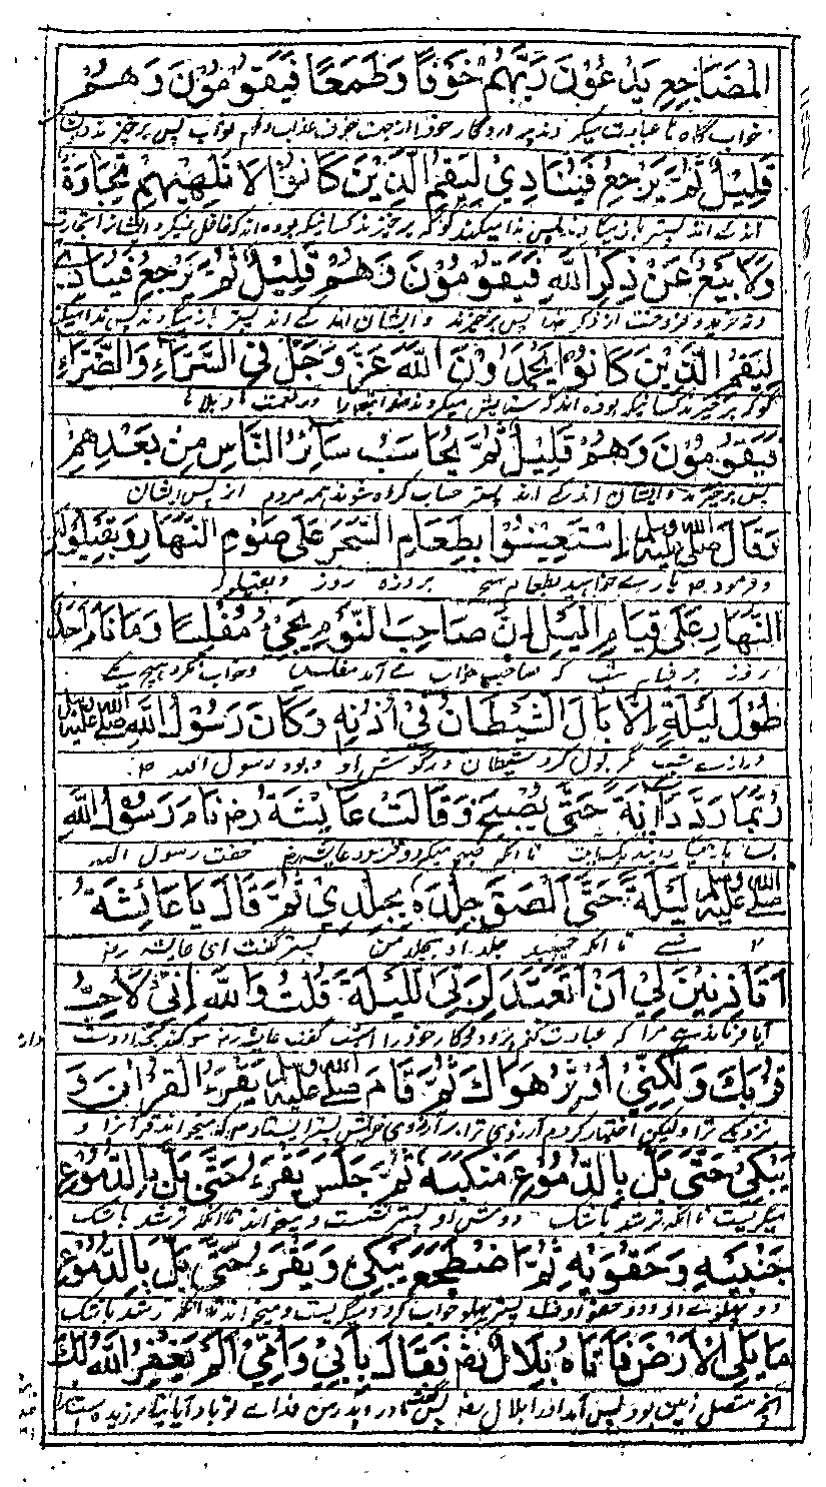 المضاجع يدعون ربهم خوفا وطمعا فيقومون وهم
خواب گاه تا عبادت میکردند پروردگار خود را از جهت خوف عذاب و طمع ثواب پس برخیزند و
قليل ثم يرجع فينادي ليقم الذين كانوا لا تلهيهم تجارة
اندک اند پستر باز میگردند پس ندا میکند گو که برخیزند کسانیکه بوده اند که غافل نمیکرد ایشانرا تجارت
ولا بيع عن ذكر الله فيقومون وهم قليل ثم يرجع فينادي
ونه خرید و فروخت از ذکر خدا پس برخیزند و ایشان اندکے اند پستر باز میگردند پس ندا میکند
ليقم الذين كانوا يحمدون الله عز وجل في السراء والضراء
گو که برخیزند کسانیکه بوده اند که ستایش میکردند خدا در نعمت و بلا
فيقومون وهم قليل ثم يحاسب سائر الناس من بعدهم
پس برخیزند و ایشان اندکے اند پستر حساب کرده شوند همه مردم از پس ایشان
وقال صلى الله عليه وسلم استعينوا بطعام السحر على صوم النهار وبقيلولة
و فرمود ص یارے خواهید بطعام سحر بروزه روز و بقیلوله
النهار على قيام الليل ان صاحب النوم يجيء مفلسا وما نام احد
روز بر قیام شب که صاحب خواب مے آید مفلس و خواب نکرد هیچ یکے
طول ليلة الا بال الشيطان في اذنه وكان رسول الله صلى الله عليه وسلم
درازے شب مگر بول کرد شیطان در گوش او و بود رسول الله ص
ربما ردد اية حتى يصبح وقالت عايشة رض نام رسول الله
بسا تا آنکه صبح میکرد و فرمود عایشه رض خفت رسول الله
صلى الله عليه وسلم ليلة حتى الصق جلده بجلدي ثم قال يا عائشة
شبے تا آنکه جلد او بجلد من پستر گفت ای عایشه رض
اتاذنين لي ان اتعبد لربي الليلة قلت والله اني لاحب
آیا فرمان دهے مرا که عبادت کنم پروردگار خود را امشب گفت عایشه رض سوگند بخدا دوست
قربك ولكني اوثر هواك ثم قام صلى الله عليه وسلم يقرء القران و
نزدیکے ترا ولیکن اختیار کردم آرزوی ترا بر آرزوی خویش پستر ایستاد که میخواند قرآنرا و
يبكي حتى بل بالدموع منكبيه ثم جلس يقرء حتى بل بالدموع
میگریست تا آنکه تر شد باشک دوش او پستر نشست و میخواند تا آنکه تر شد باشک
جنبيه وحقويه ثم اضطجع يبكي ويقرء حتى بل بالدموع
دو پهلوے او و دو حقو او پستر پهلو خواب کرد و میگریست و میخواند تا آنکه تر شد باشک
ما يلي الارض فاتاه بلال رض فقال بابي وامي الم يغفر الله لك
آنچه متصل زمین بود پس آمد او را بلال رض پس گفت مادر و پدر من فداے تو باد آیا نیامرزیده است